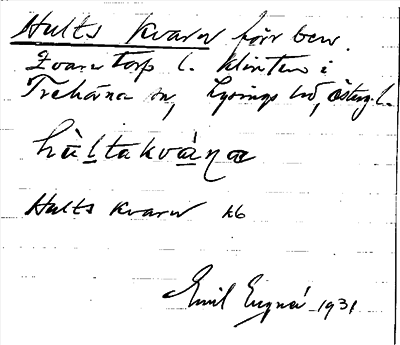 Hults kvarn förr ben.
Kvarntorp l. Klinten i
Trehörna sn, Lysings hd, Östergl.
hùl̠takvá̠ɳa
Hults kvarn kb
Emil Eugné 1931